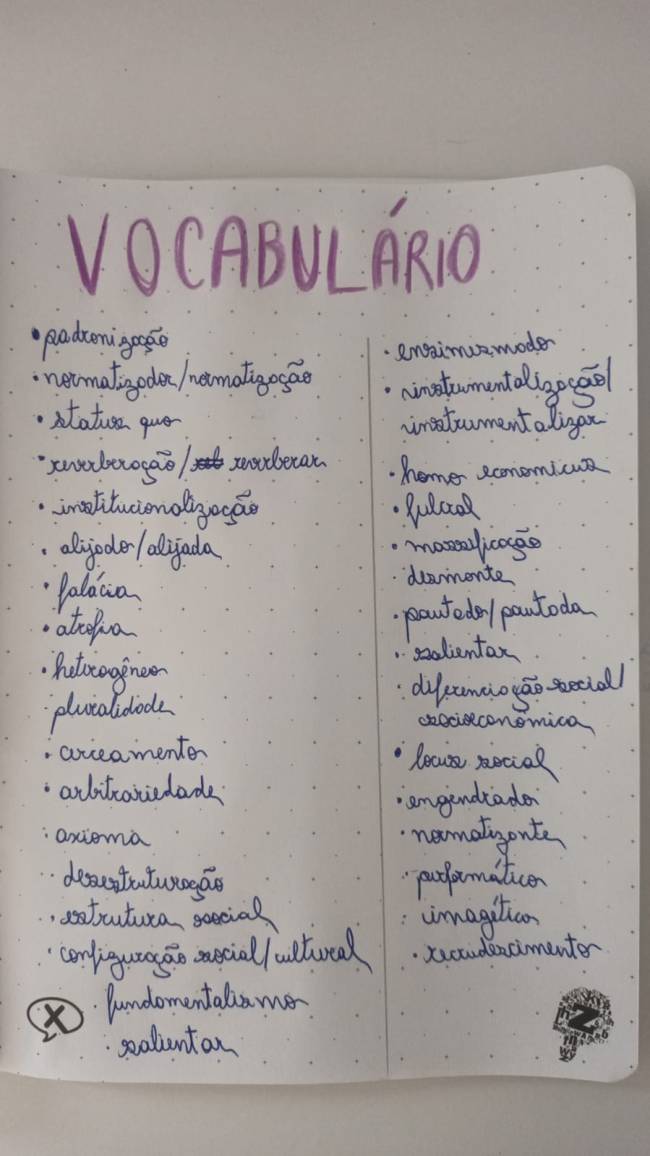 VOCABULÁRIO
• padronização
• normatizador/normatização
• status quo
• reverberação/ reverberar
• institucionalização
• alijado/alijada
• falácia
• atrofia
• heterogêneo
pluralidade
• cerceamento
• arbitrariedade
• axioma
• desestruturação
• estrutura social
• configuração social/cultural
• fundamentalismo
• salientar
• ensimesmado
• instrumentalização/
instrumentalizar
• homo economicus
• fulcral
• massificação
• desmonte
• pautado/pautada
• salientar
• diferenciação social/
socioeconômica
• locus social
• engendrado
• normatizante
• performático
• imagético
• recrudescimento
X
Z